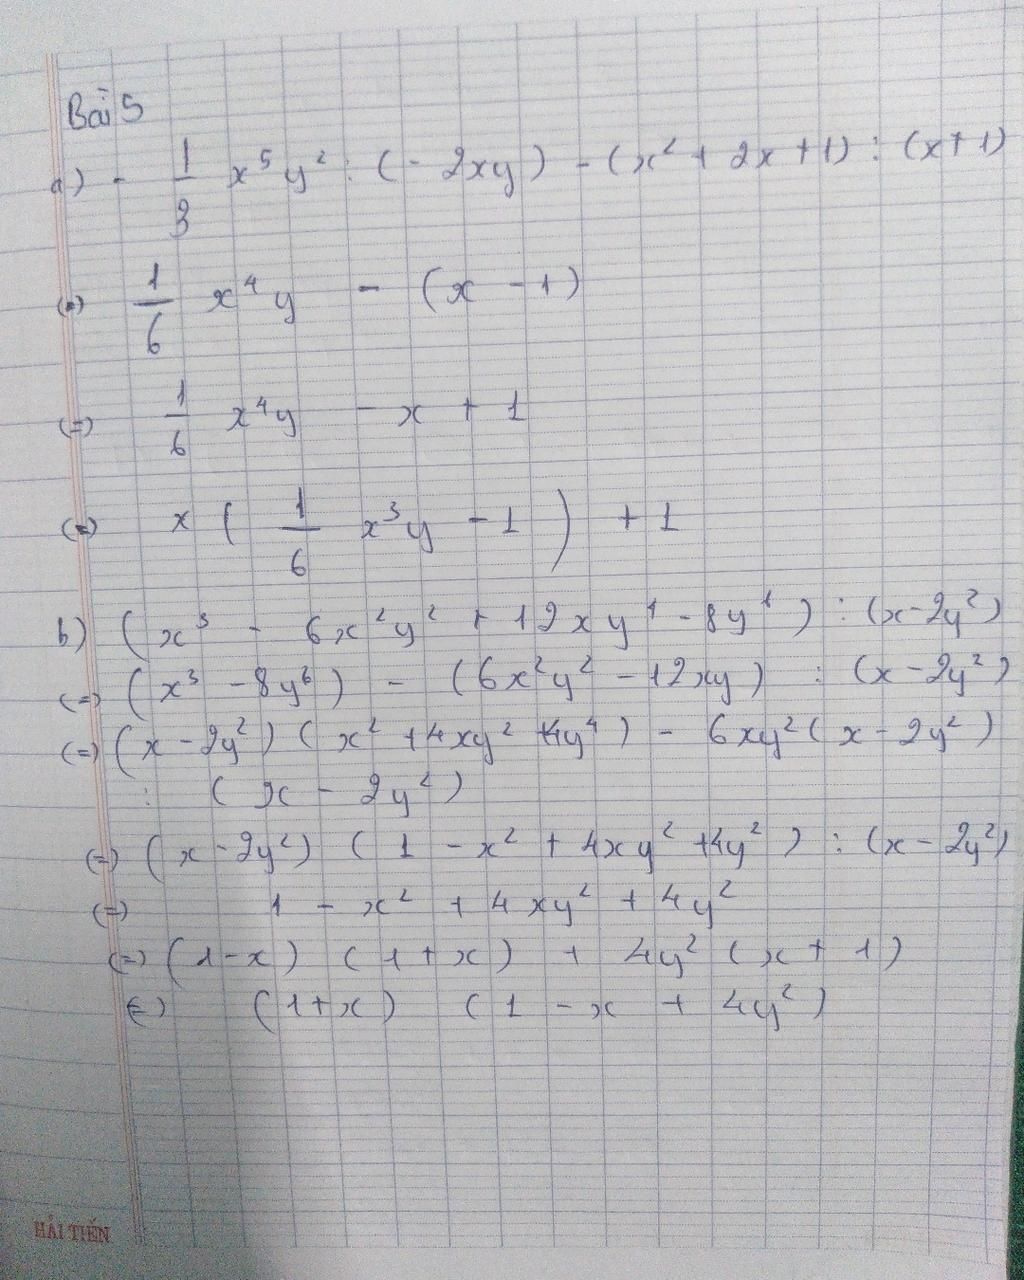 Bài 5
a) - 1/3 x⁵y² : (-2xy) - (x² + 2x + 1) : (x + 1)
(=) 1/6 x⁴y - (x - 1)
(=) 1/6 x⁴y - x + 1
(=) x ( 1/6 x³y - 1 ) + 1
b) (x³ - 6x²y² + 12xy⁴ - 8y⁶) : (x - 2y²)
(=) (x³ - 8y⁶) - (6x²y² - 12xy) : (x - 2y²)
(=) (x - 2y²) (x² + 4xy² + 4y⁴) - 6xy² (x - 2y²)
: (x - 2y²)
(=) (x - 2y²) (1 - x² + 4xy² + 4y²) : (x - 2y²)
(=) 1 - x² + 4xy² + 4y²
(=) (1 - x) (1 + x) + 4y² (x + 1)
(=) (1 + x) (1 - x + 4y²)
HẢI TIẾN